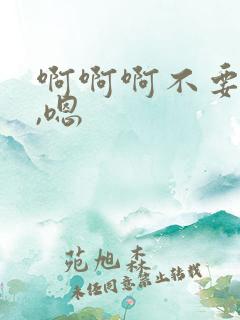 啊啊啊不要
,嗯
苑旭森
未经同意禁止转载